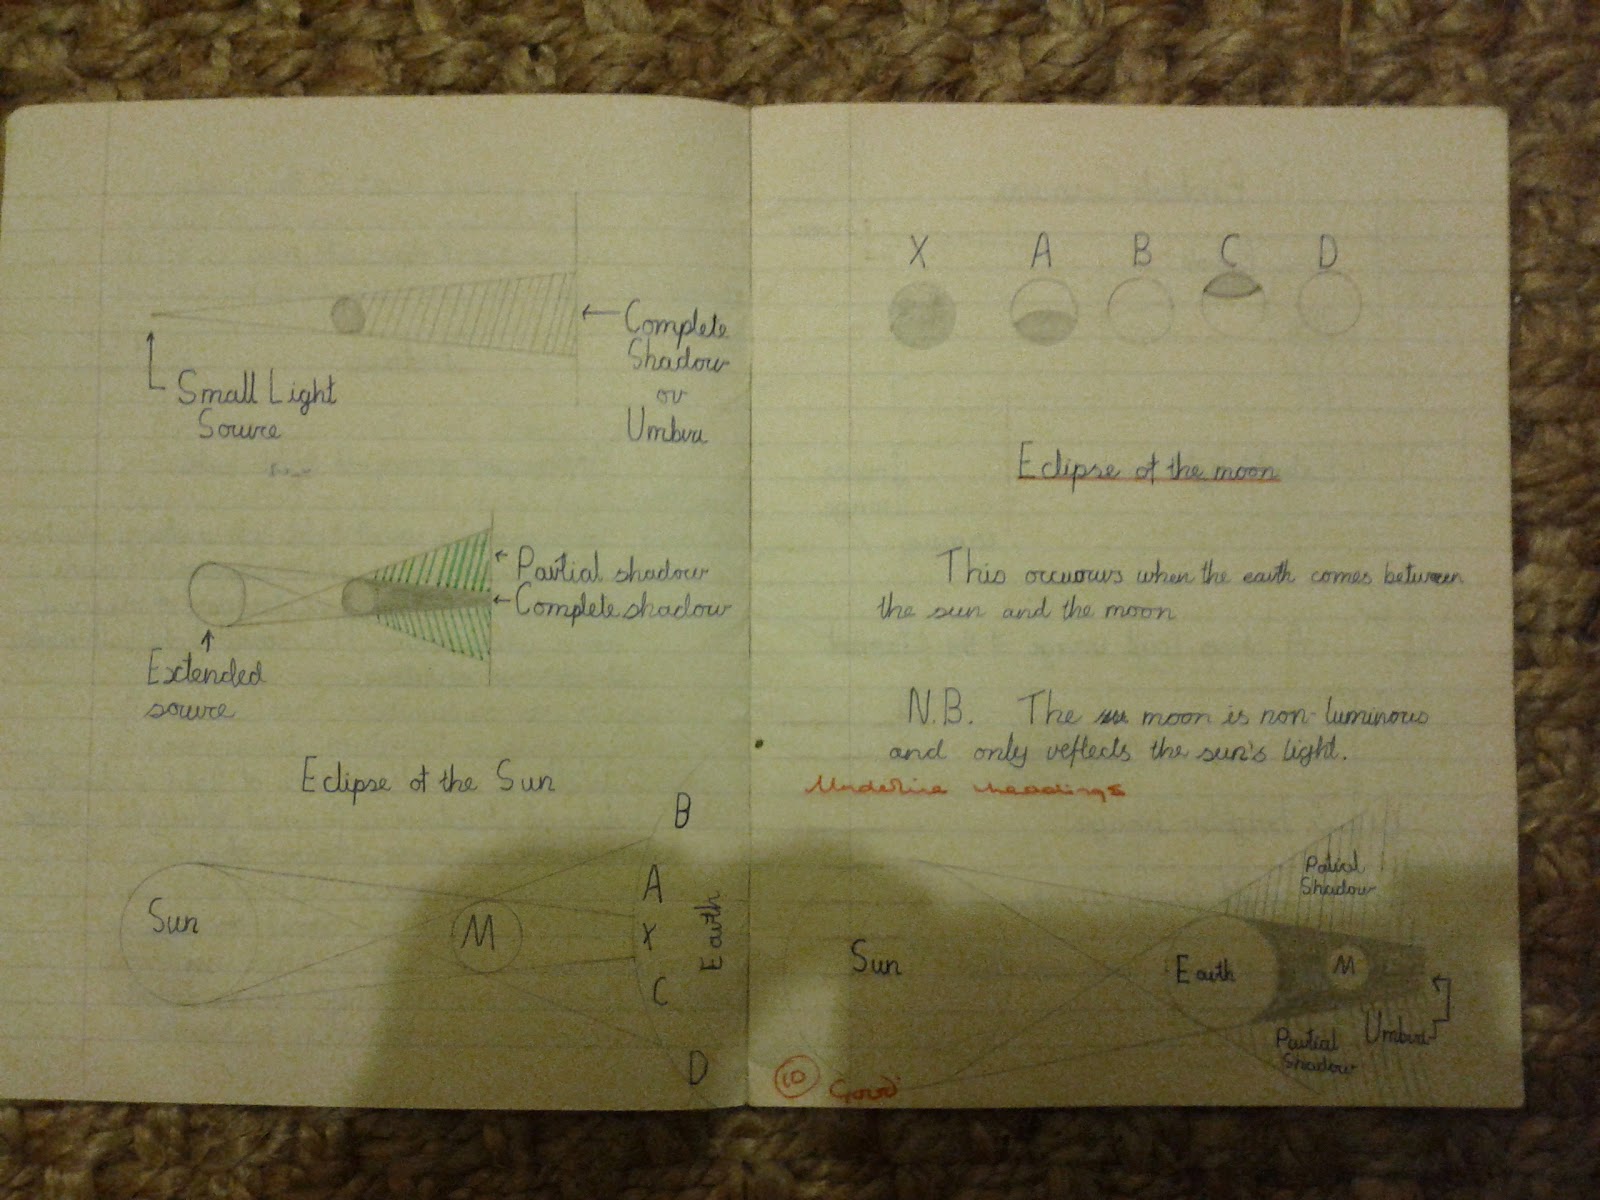 Complete
Shadow
or
Umbra
Small Light
Source
Partial shadow
Complete shadow
Extended
source
Eclipse of the Sun
B
Sun
M
A
X
C
Earth
D
X A B C D
Eclipse of the moon
This occurours when the earth comes between
the sun and the moon
N.B. The moon is non-luminous
and only reflects the sun's light.
Underline headings
Patial
Shadow
Sun
Earth
M
Umbra
Partial
Shadow
10 Good